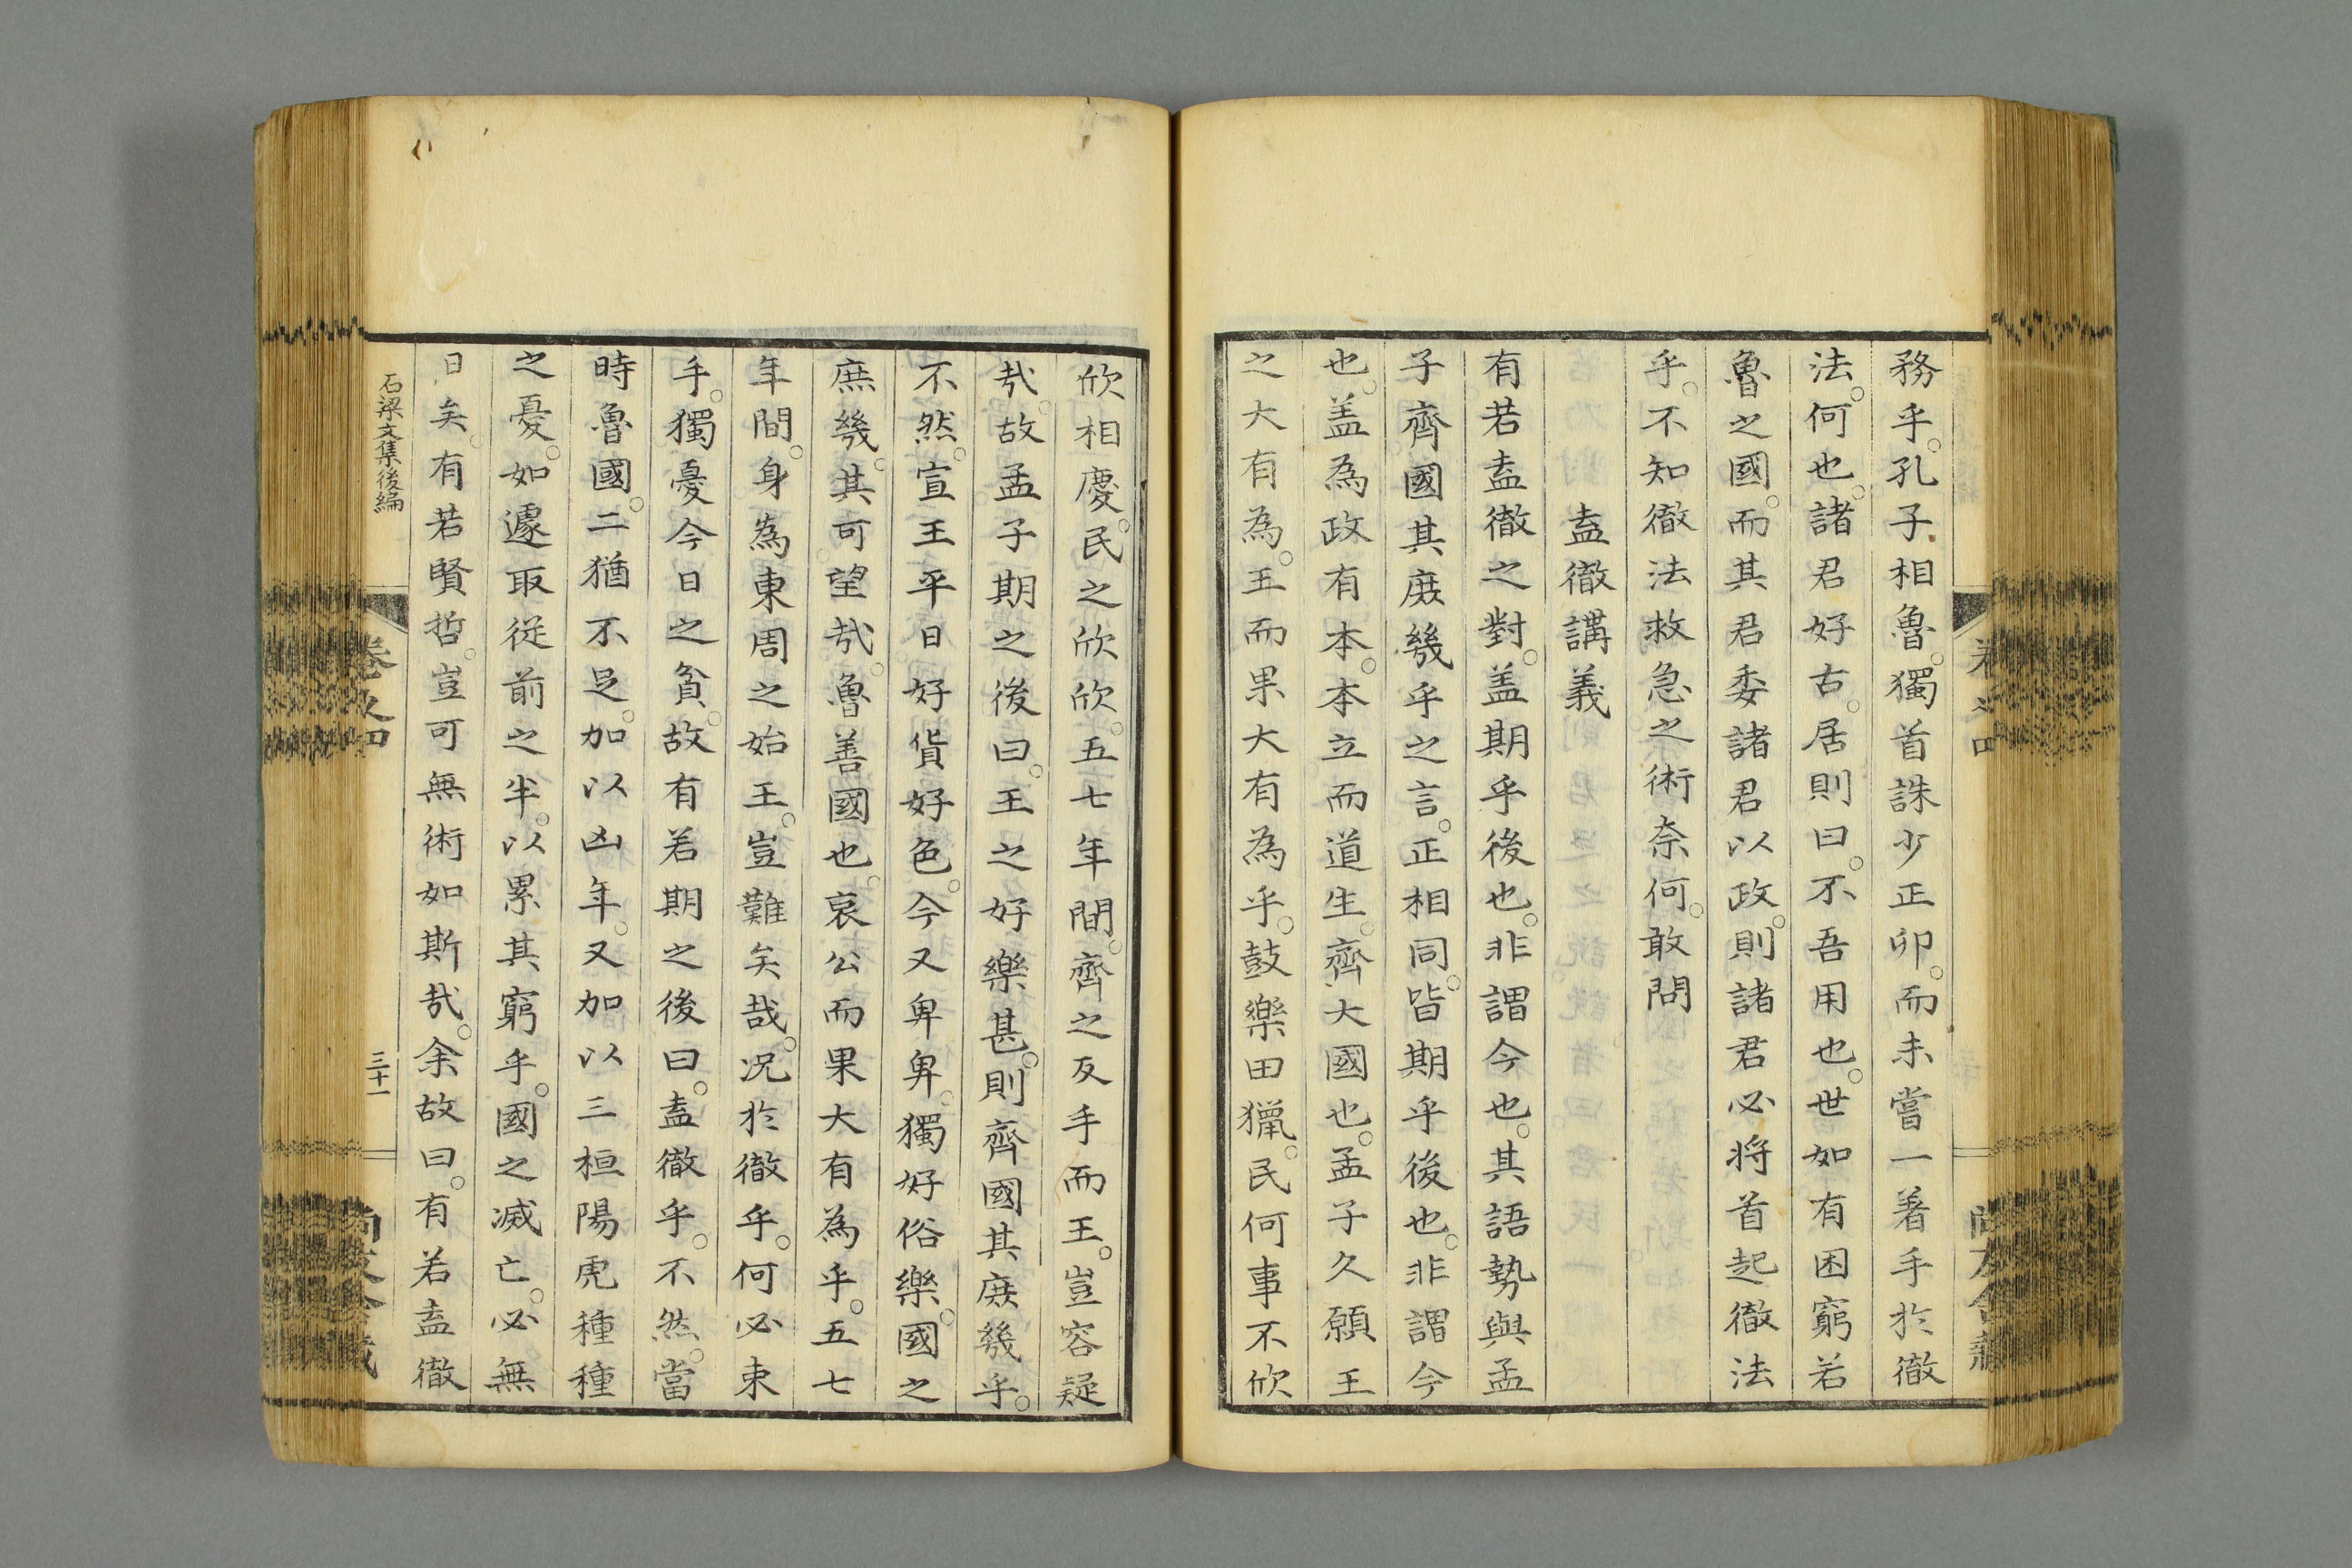 務乎。孔子相魯。獨首誅少正卯。而未嘗一著手於徹
法。何也。諸君好古。居則曰。不吾用也。世如有困窮若
魯之國。而其君委諸君以政。則諸君必将首起徹法
乎。不知徹法救急之術奈何。敢問
盍徹講義
有若盍徹之對。盖期乎後也。非謂今也。其語勢與孟
子齊國其庻幾乎之言。正相同。皆期乎後也。非謂今
也。盖為政有本。本立而道生。齊大國也。孟子久願王
之大有為。王而果大有為乎。鼓樂田獵。民何事不欣
欣相慶。民之欣欣。五七年間。齊之反手而王。豈容疑
哉。故孟子期之後曰。王之好樂甚。則齊國其庻幾乎。
不然。宣王平日好貨好色。今又卑卑。獨好俗樂。國之
庶幾。其可望哉。魯善國也。哀公而果大有為乎。五七
年間。身為東周之始王。豈難矣哉。况於徹乎。何必束
手。獨憂今日之貧。故有若期之後曰。盍徹乎。不然。當
時魯國。二猶不足。加以凶年。又加以三桓陽虎種種
之憂。如遽取従前之半。以累其窮乎。國之滅亡。必無
日矣。有若賢哲。豈可無術如斯哉。余故曰。有若盍徹
石梁文集後編
卷之四
三十一